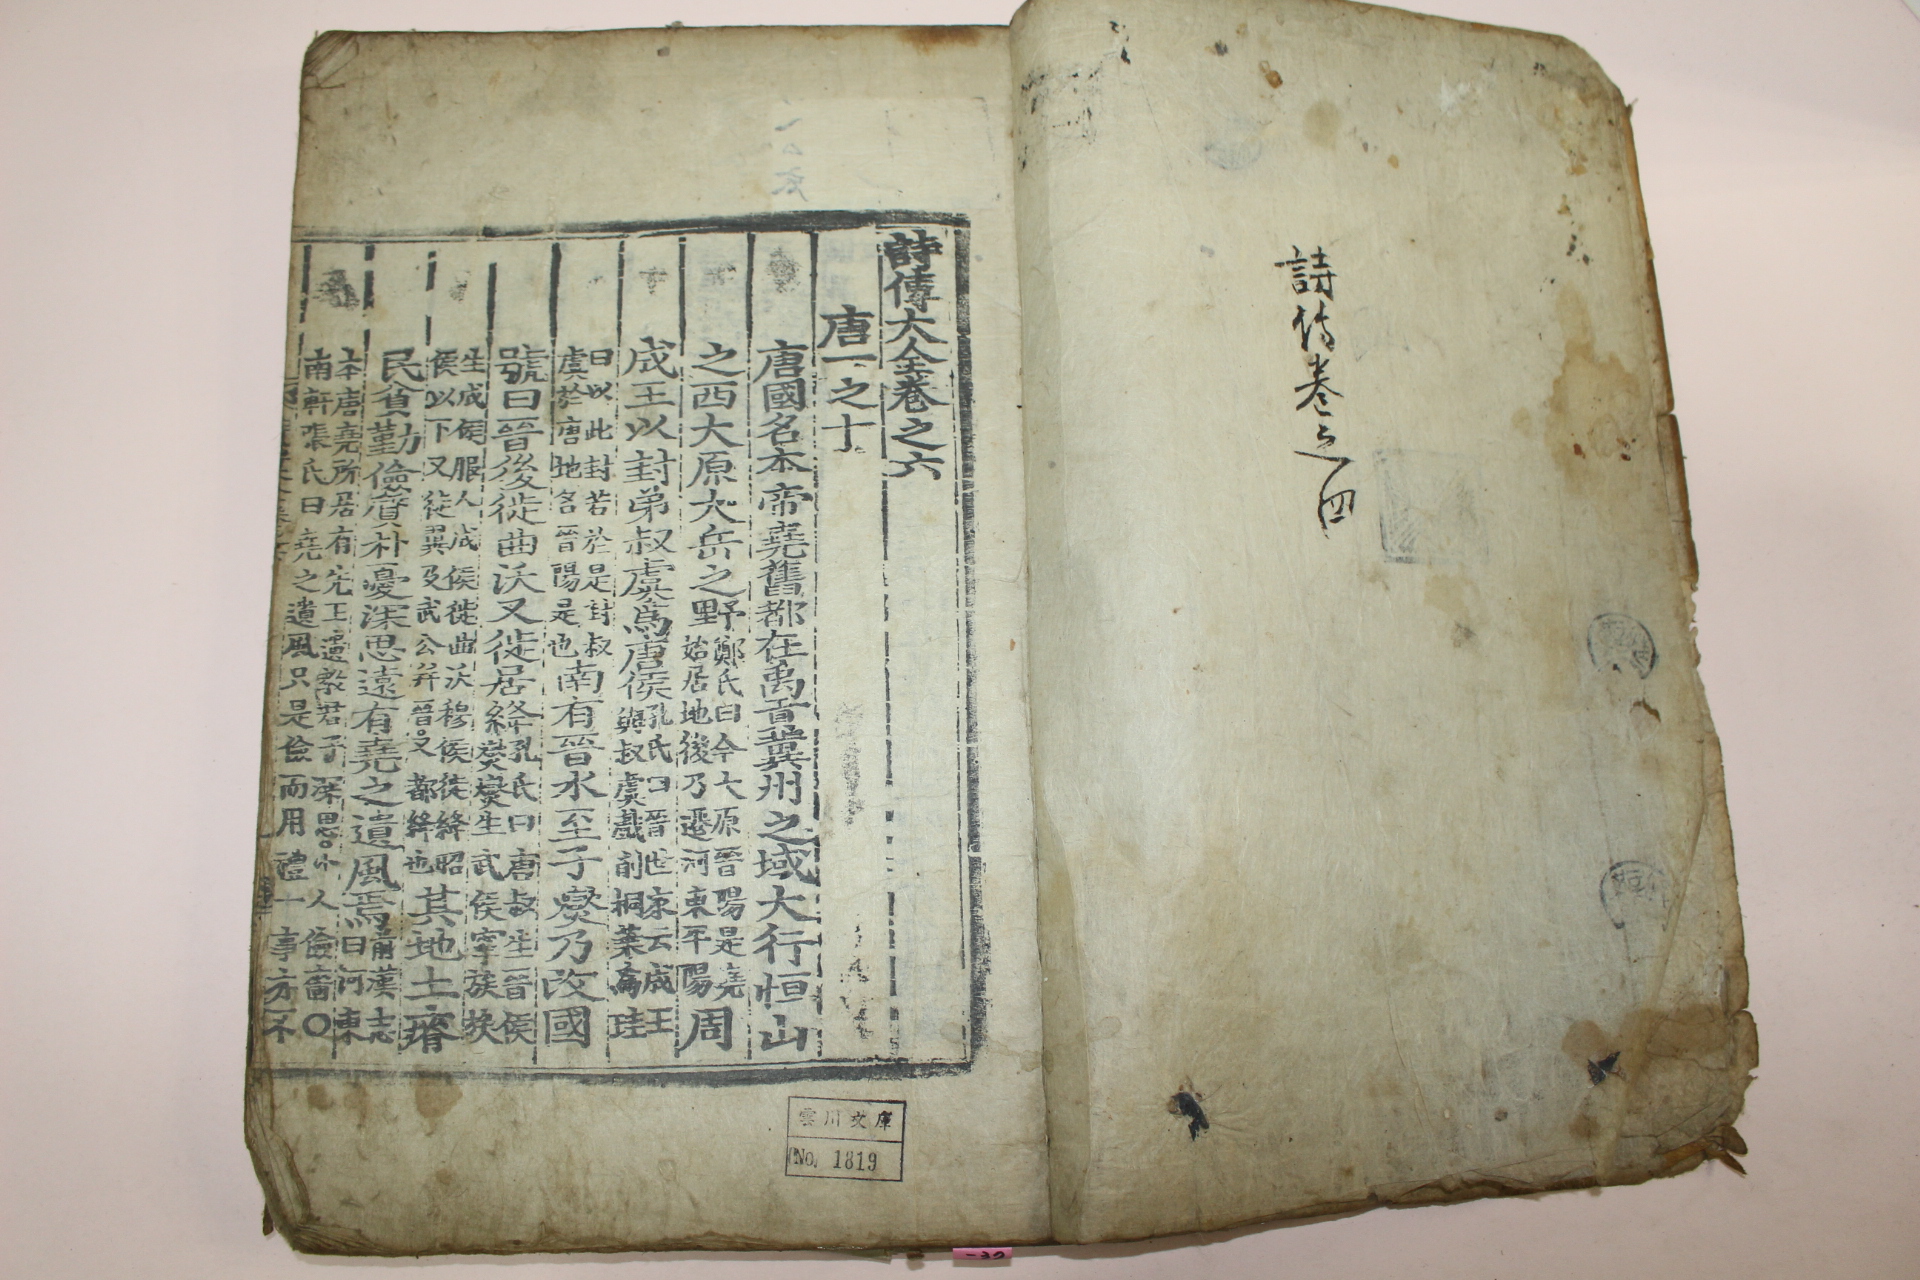 詩傳卷之四
詩傳大全卷之六
唐一之十
唐國名本帝堯舊都在禹貢冀州之域大行恒山
之西大原大岳之野鄭氏曰今大原晉陽是堯始居地後乃遷河東平陽周
成王以封弟叔虞爲唐侯孔氏曰晉世家云成王與叔虞戱削桐葉爲珪
曰以此封若於是封叔虞於唐地名晉陽是也南有晉水至子燮乃改國
號曰晉後徙曲沃又徙居絳孔氏曰唐叔生晉侯燮燮生武侯寧族族
生成侯服人成侯徙曲沃穆侯徙絳昭侯以下又徙翼及武公幷晉又都絳也其地土瘠
民貧勤儉質朴憂深思遠有堯之遺風焉前漢志曰河東
本唐堯所居有先王遺敎君子深思小人儉嗇○南軒張氏曰堯之遺風只是儉而用禮一事方不
雲川文庫
No. 1819